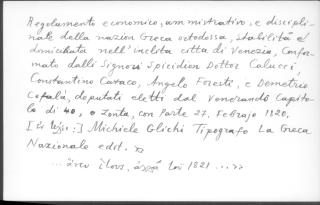 Regolamento economico, amministrativo, e discipli-
nale della nazion Greca ortodossa, stabilita e/
domiciliata nell'inclita città di Venezia, Confor-
mato dalli Signori Spiridion Dottor Calucci,
Constantino Caraco, Angelo Foresti, e Demetrio
Cefalà, deputati eletti dal Venerando Capito-
lo di 40, e Zonta, con Parte 27. Febrajo 1820.
[ἐν τέλει:] Michiele Glichi Tipografo La Greca
Nazionale edit. »
... ἄνευ ἔτους, ἀλλὰ τοῦ 1821 ... »